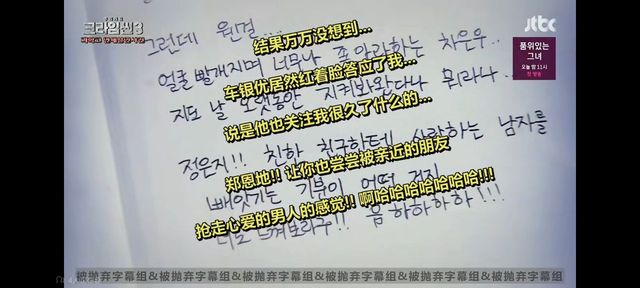 크라임씬3
jtbc
품위있는
그녀
오늘 밤 11시
첫 방송
그런데 웬걸...
结果万万没想到...
얼굴 빨개지며 너무나 좋아하는 차은우..
车银优居然红着脸答应了我...
지도 날 오랫동안 지켜봐왔다나 뭐라나..
说是他也关注我很久了什么的...
정은지!! 친한 친구한테 사랑하는 남자를
郑恩地!! 让你也尝尝被亲近的朋友
빼앗기는 기분이 어떤 건지
抢走心爱的男人的感觉!! 啊哈哈哈哈哈哈哈!!!
너도 느껴보라구!! 음하하하하!!!
被抛弃字幕组&被抛弃字幕组&被抛弃字幕组&被抛弃字幕组